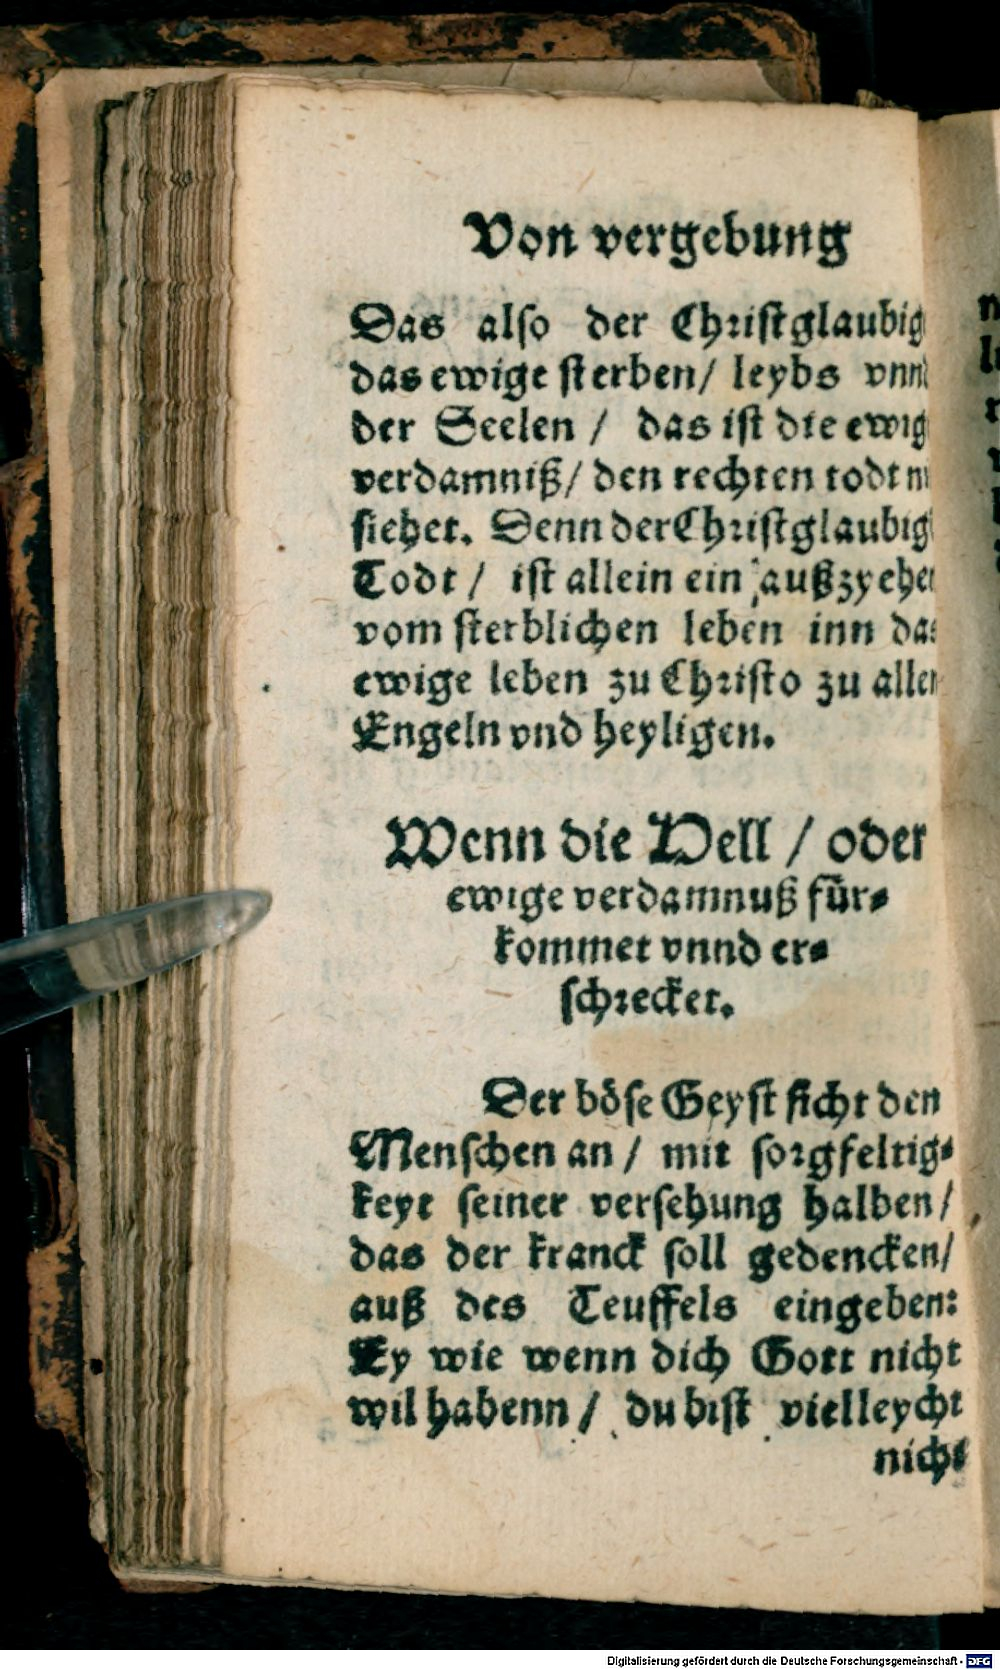 Von vergebung
Das also der Christglaubig
das ewige sterben/ leybs vnn
der Seelen / das ist die ewig
verdamniß/ den rechten todt
siehet. Denn der Christglaubig
Todt / ist allein ein außzyehe
vom sterblichen leben inn das
ewige leben zu Christo zu allen
Engeln vnd heyligen.
Wenn die Hell / oder
ewige verdamnuß für⸗
kommet vnnd er⸗
schrecket.
Der böse Geyst ficht den
Menschen an / mit sorgfeltig⸗
keyt seiner versehung halben/
das der kranck soll gedencken/
auß des Teuffels eingeben:
Ey wie wenn dich Gott nicht
wil habenn / du bist vielleycht
nicht
Digitalisierung gefördert durch die Deutsche Forschungsgemeinschaft - DFG